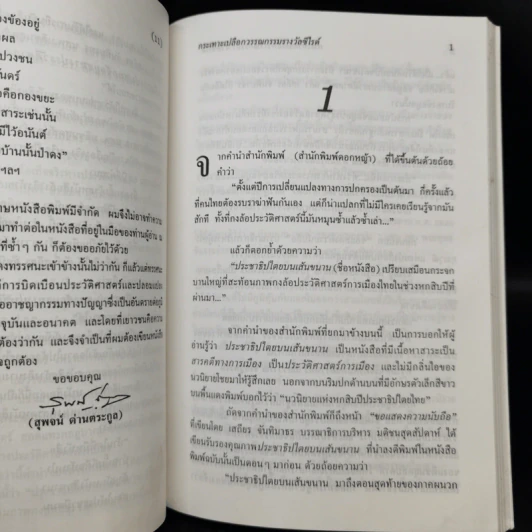 องข้องอยู่
(11)
ผล
ปวงชน
นตร์
อคือกองขยะ
สาระเช่นนั้น
มีไว้อนันต์
บ้านนั้นป่าดง"
ฯลฯ
ษหนังสือพิมพ์มีจำกัด ผมจึงไม่อาจทำความ
มาทำต่อในหนังสือที่อยู่ในมือของท่านผู้อ่าน
ที่ซ้ำๆ กัน ก็ต้องขออภัยไว้ด้วย
ดงทรรศนะเข้าข้างนั้นไม่ว่ากัน ก็แล้วแต่ทรรศนะ
การบิดเบือนประวัติศาสตร์และปลอมแปลง
ออาชญากรรมทางปัญญาซึ่งเป็นอันตรายต่อ
จุบันและอนาคต และโดยที่เยาวชนคือความ
ต้องว่ากัน และจึงจำเป็นที่ผมต้องเขียนหนังสือ
จถูกต้อง
ขอขอบคุณ
(สุพจน์ ด่านตระกูล)
กระเทาะเปลือกวรรณกรรมรางวัลซีไรต์ 1
1
จากคำนำสำนักพิมพ์ (สำนักพิมพ์ดอกหญ้า) ที่ได้ขึ้นต้นด้วยถ้อย
คำว่า
"ตั้งแต่ปีการเปลี่ยนแปลงทางการปกครองเป็นต้นมา กี่ครั้งแล้ว
ที่คนไทยต้องรบราฆ่าฟันกันเอง แต่ก็น่าแปลกที่ไม่มีใครเคยเรียนรู้จากมัน
สักที ทั้งที่กงล้อประวัติศาสตร์นี้มันหมุนซ้ำแล้วซ้ำเล่า..."
แล้วก็ตอกย้ำด้วยความว่า
"ประชาธิปไตยบนเส้นขนาน (ชื่อหนังสือ) เปรียบเสมือนกระจก
บานใหญ่ที่สะท้อนภาพกงล้อประวัติศาสตร์การเมืองไทยในช่วงหกสิบปีที่
ผ่านมา..."
จากคำนำของสำนักพิมพ์ที่ยกมาข้างบนนี้ เป็นการบอกให้ผู้
อ่านรู้ว่า ประชาธิปไตยบนเส้นขนาน เป็นหนังสือที่มีเนื้อหาสาระเป็น
สารคดีทางการเมือง เป็นประวัติศาสตร์การเมือง และไม่มีกลิ่นไอของ
นวนิยายโชยมาให้รู้สึกเลย นอกจากบนริมปกด้านบนที่มีอักษรตัวเล็กสีขาว
บนพื้นแดงพิมพ์บอกไว้ว่า "นวนิยายแห่งหกสิบปีประชาธิปไตยไทย"
ถัดจากคำนำของสำนักพิมพ์ก็ถึงหน้า "ขอแสดงความนับถือ"
ที่เขียนโดย เสถียร จันทิมาธร บรรณาธิการบริหาร มติชนสุดสัปดาห์ ได้
เขียนรับรองคุณภาพประชาธิปไตยบนเส้นขนาน ที่นำลงตีพิมพ์ในหนังสือ
พิมพ์ฉบับนั้นเป็นตอนๆ มาก่อน ด้วยถ้อยความว่า
"ประชาธิปไตยบนเส้นขนาน มาถึงตอนสุดท้ายของภาคผนวก